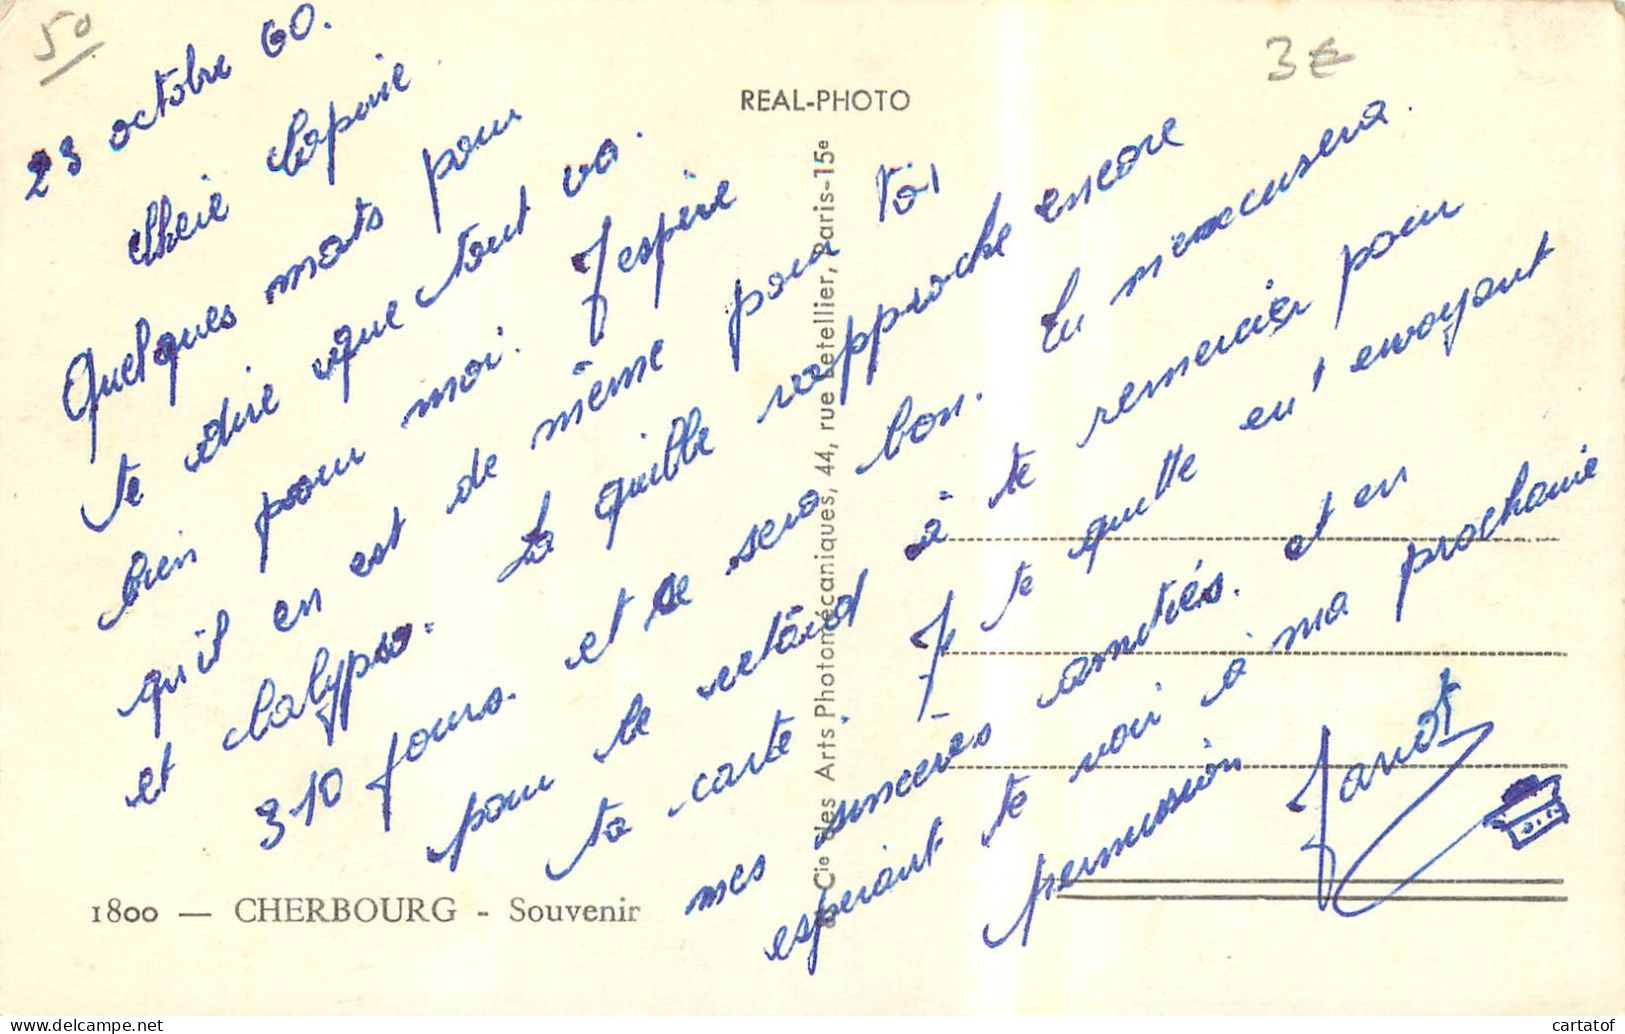 50
3€
REAL-PHOTO
23 octobre 60.
Chère Copine.
Quelques mots pour
te dire que tout va.
bien pour moi. J'espère
qu'il en est de même pour toi
et Calypso. La quille rapproche encore
310 jours. et se sera bon. Tu m'excusera.
pour le retard à te remercier pour
ta carte. Je te quitte en t'envoyant
mes sincères amitiés. et en
esperant te voir à ma prochaine
permission Janot
Cie des Arts Photomécaniques, 44, rue Letellier, Paris-15e
1800 — CHERBOURG - Souvenir
cartatof